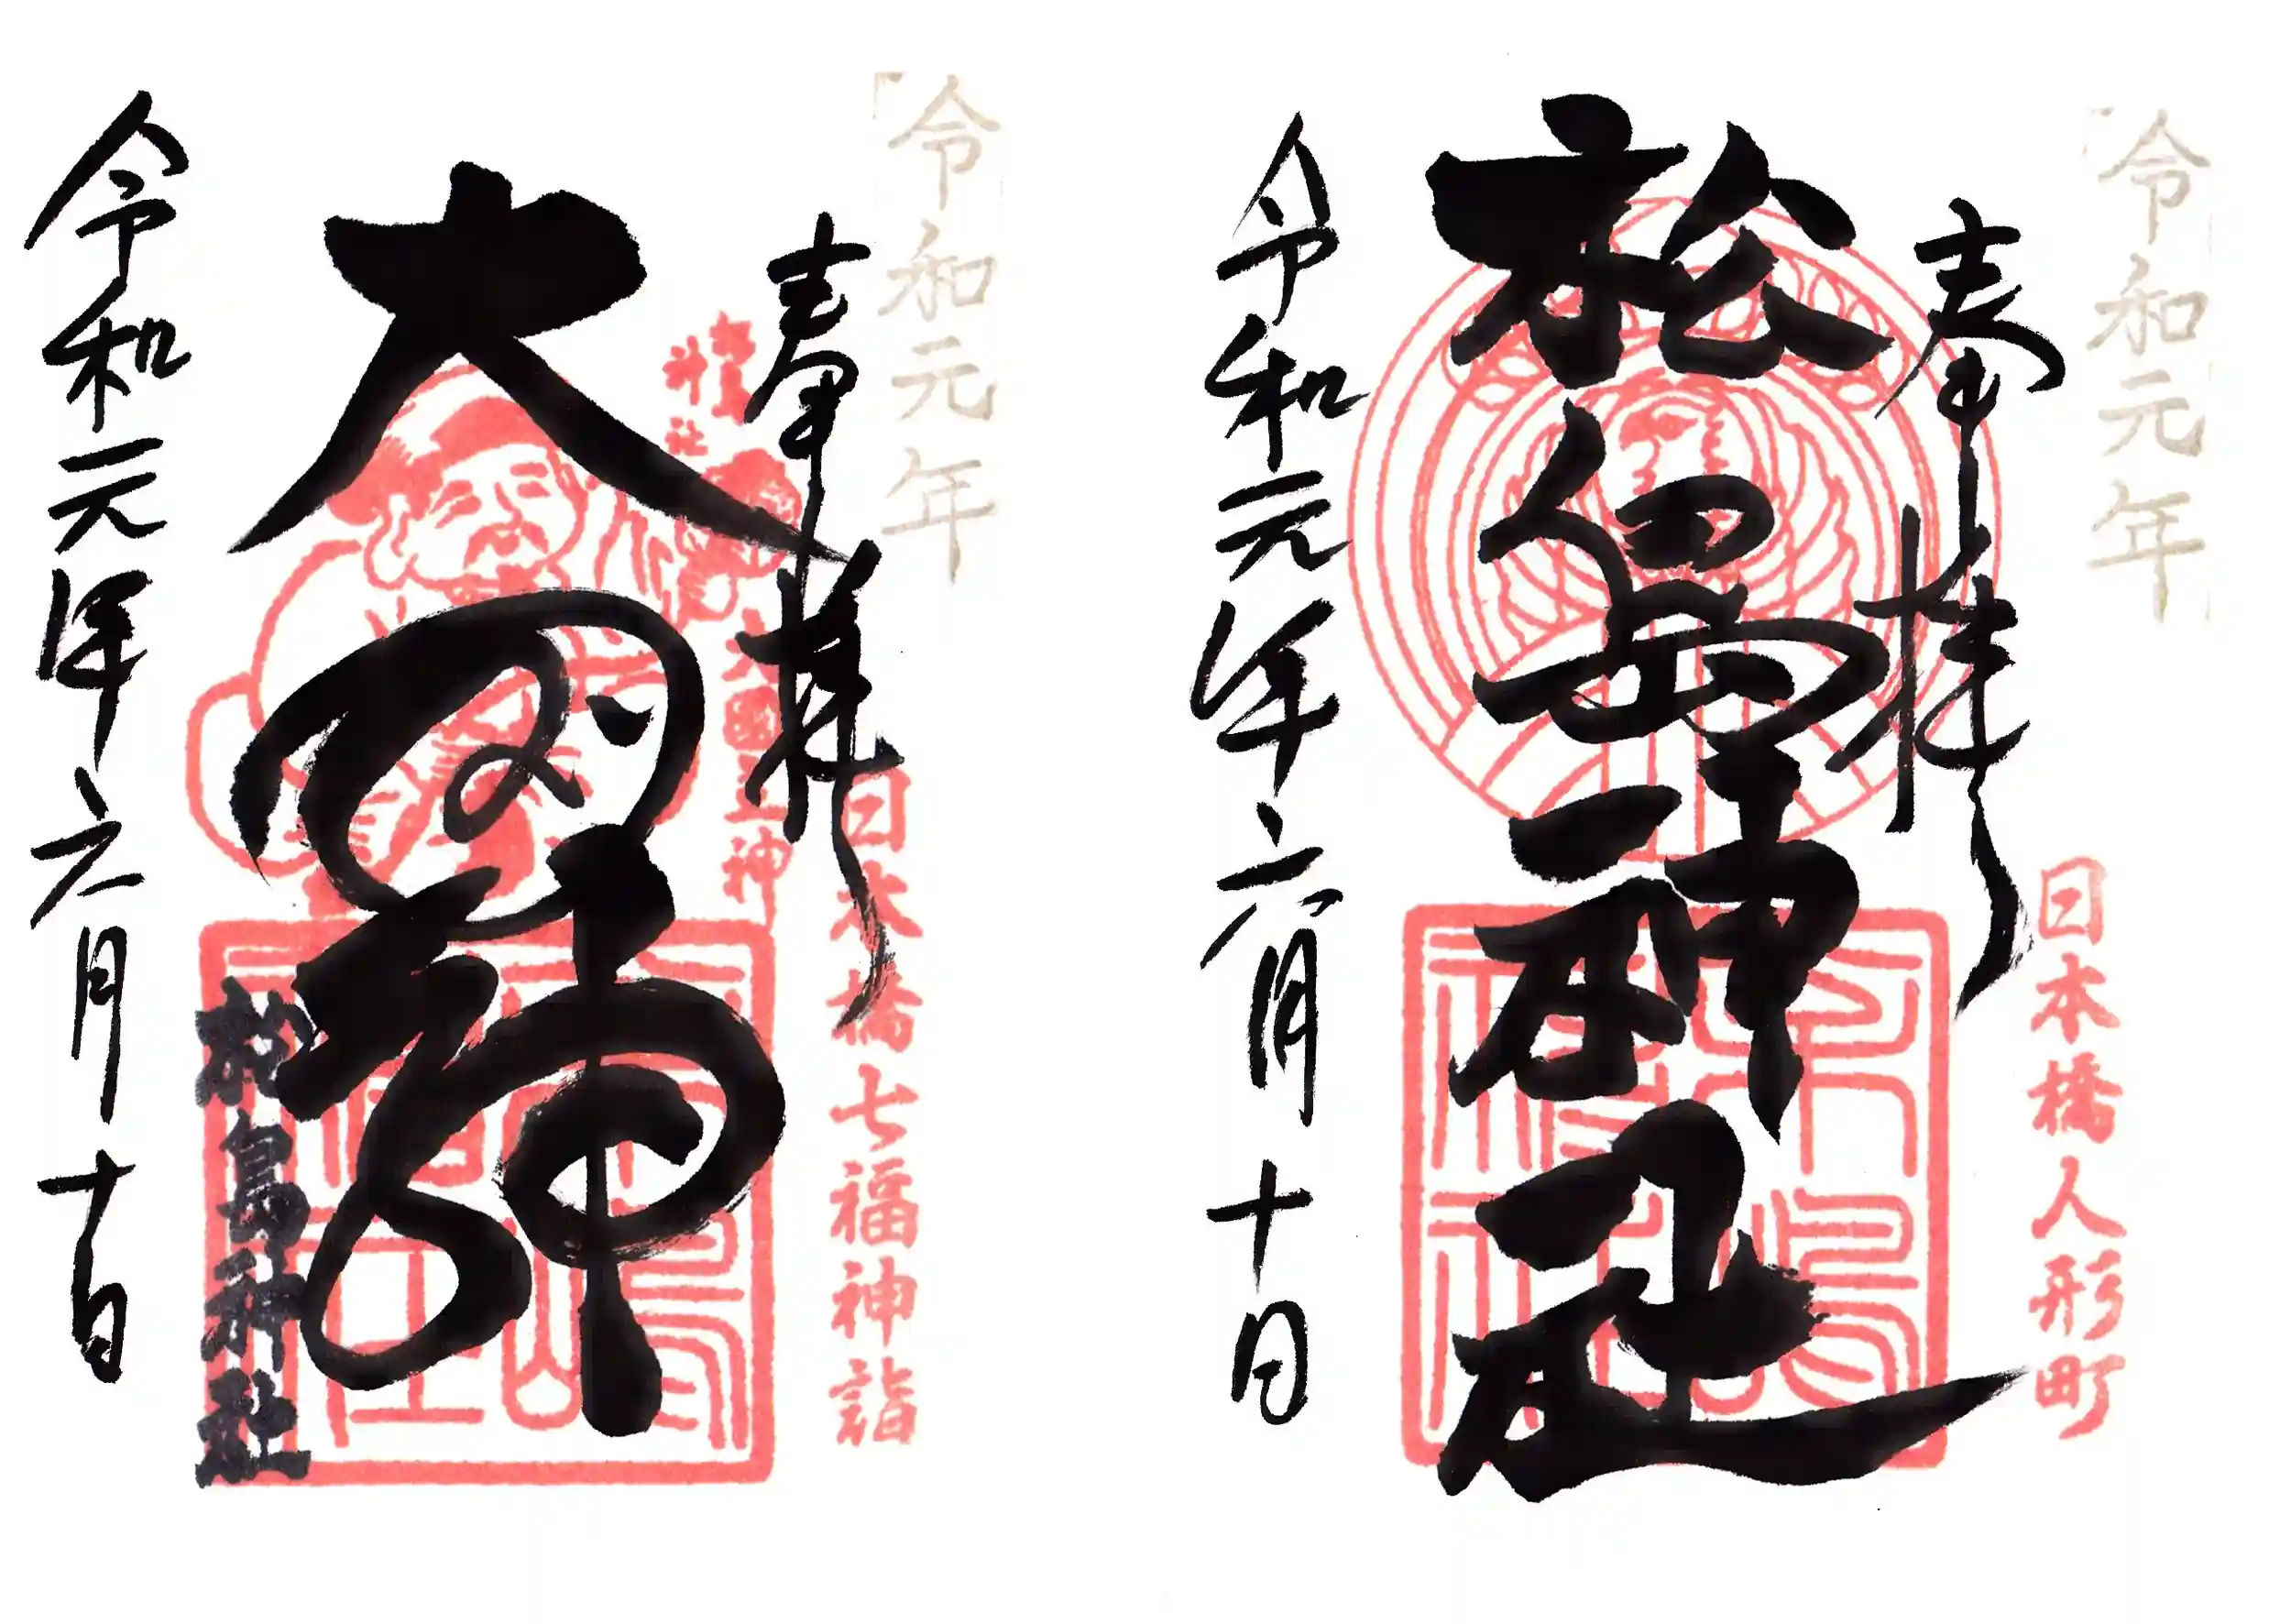 令和元年
奉拝
日本橋人形町
松島神社
令和元年六月十日
令和元年
奉拝
日本橋七福神詣
大国主神
大国神
松島神社
令和元年六月十日